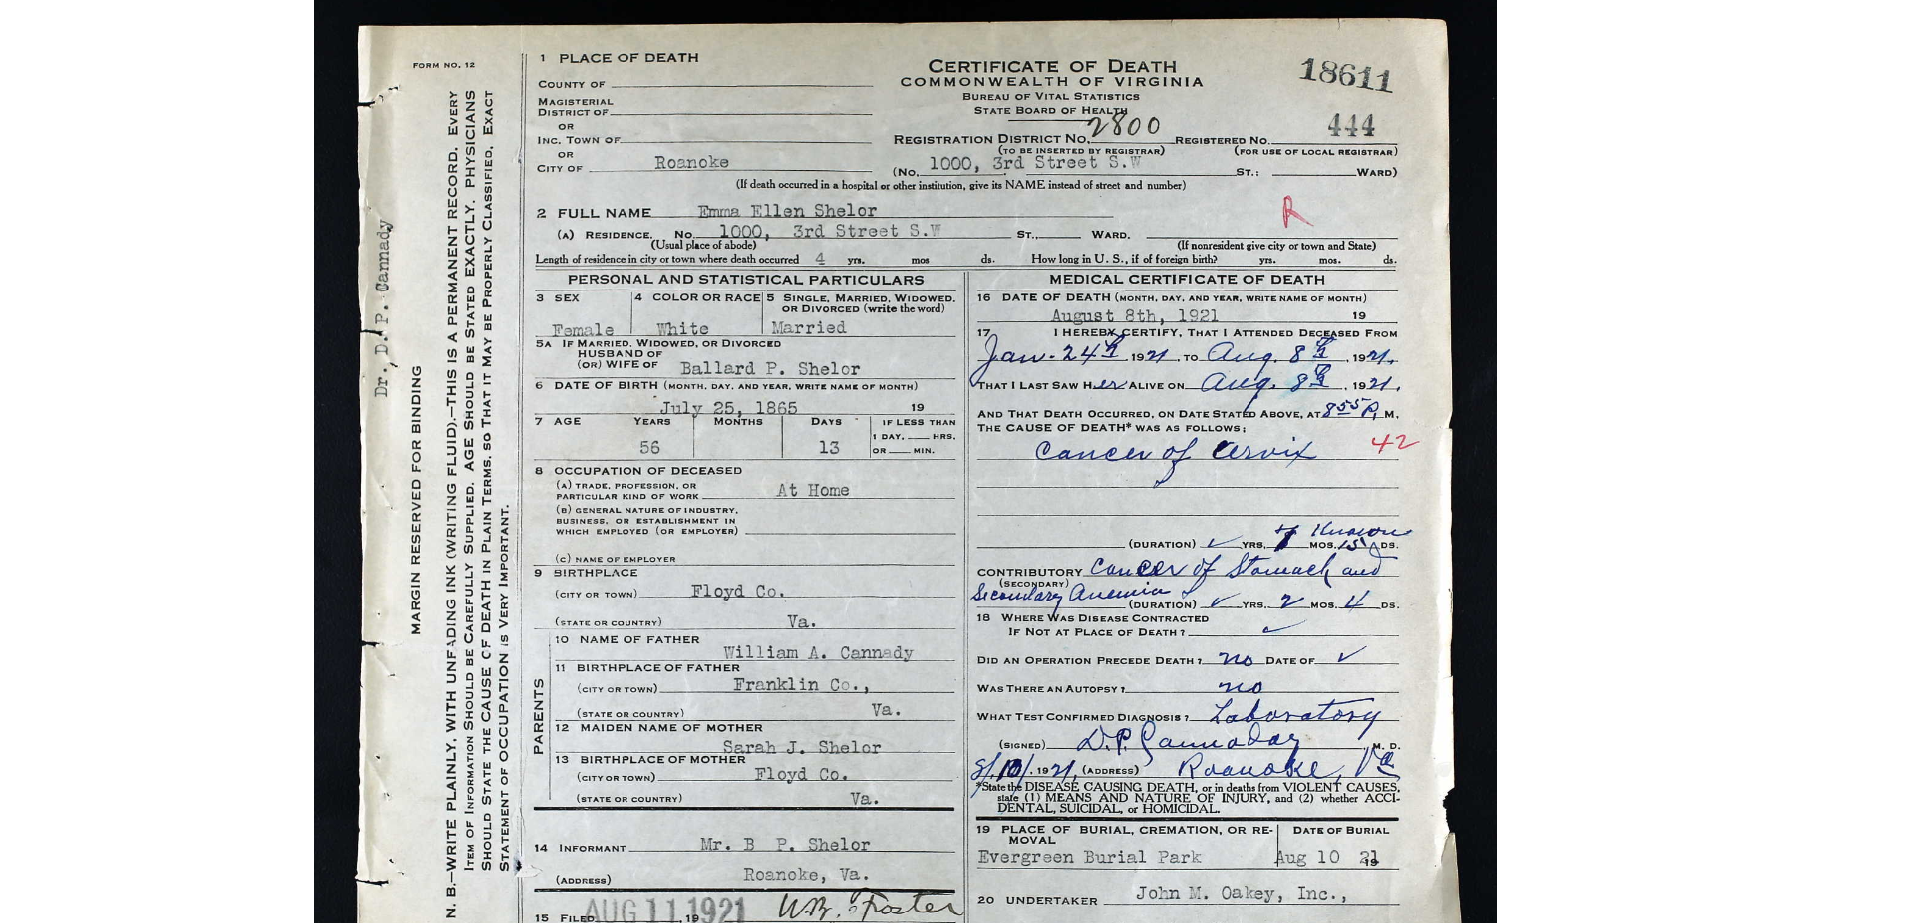 FORM NO. 12
Dr., D. P. Cannady
MARGIN RESERVED FOR BINDING
N. B.—WRITE PLAINLY, WITH UNFADING INK (WRITING FLUID).—THIS IS A PERMANENT RECORD. EVERY
ITEM OF INFORMATION SHOULD BE CAREFULLY SUPPLIED. AGE SHOULD BE STATED EXACTLY. PHYSICIANS
SHOULD STATE THE CAUSE OF DEATH IN PLAIN TERMS, SO THAT IT MAY BE PROPERLY CLASSIFIED. EXACT
STATEMENT OF OCCUPATION IS VERY IMPORTANT.
1 PLACE OF DEATH
COUNTY OF
MAGISTERIAL
DISTRICT OF
OR
INC. TOWN OF
OR
CITY OF Roanoke
CERTIFICATE OF DEATH
COMMONWEALTH OF VIRGINIA
BUREAU OF VITAL STATISTICS
STATE BOARD OF HEALTH
18611
REGISTRATION DISTRICT NO. 2800 REGISTERED NO. 444
(TO BE INSERTED BY REGISTRAR) (FOR USE OF LOCAL REGISTRAR)
(NO. 1000, 3rd Street S.W ST.; WARD)
(If death occurred in a hospital or other institution, give its NAME instead of street and number)
2 FULL NAME Emma Ellen Shelor
R
(A) RESIDENCE. No. 1000, 3rd Street S.W ST., WARD.
(Usual place of abode) (If nonresident give city or town and State)
Length of residence in city or town where death occurred 4 yrs. mos ds. How long in U. S., if of foreign birth? yrs. mos. ds.
PERSONAL AND STATISTICAL PARTICULARS
3 SEX 4 COLOR OR RACE 5 SINGLE, MARRIED, WIDOWED,
OR DIVORCED (write the word)
Female White Married
5A IF MARRIED, WIDOWED, OR DIVORCED
HUSBAND OF
(OR) WIFE OF Ballard P. Shelor
6 DATE OF BIRTH (MONTH, DAY, AND YEAR, WRITE NAME OF MONTH)
July 25, 1865 19
7 AGE YEARS MONTHS DAYS IF LESS THAN
1 DAY, HRS.
56 13 OR MIN.
8 OCCUPATION OF DECEASED
(A) TRADE, PROFESSION, OR
PARTICULAR KIND OF WORK At Home
(B) GENERAL NATURE OF INDUSTRY,
BUSINESS, OR ESTABLISHMENT IN
WHICH EMPLOYED (OR EMPLOYER)
(C) NAME OF EMPLOYER
9 BIRTHPLACE
(CITY OR TOWN) Floyd Co.
(STATE OR COUNTRY) Va.
PARENTS
10 NAME OF FATHER
William A. Cannady
11 BIRTHPLACE OF FATHER
(CITY OR TOWN) Franklin Co.,
(STATE OR COUNTRY) Va.
12 MAIDEN NAME OF MOTHER
Sarah J. Shelor
13 BIRTHPLACE OF MOTHER
(CITY OR TOWN) Floyd Co.
(STATE OR COUNTRY) Va.
14 INFORMANT Mr. B P. Shelor
(ADDRESS) Roanoke, Va.
15 FILED AUG 11 1921 19 W.B. Foster
MEDICAL CERTIFICATE OF DEATH
16 DATE OF DEATH (MONTH, DAY, AND YEAR, WRITE NAME OF MONTH)
August 8th, 1921 19
17 I HEREBY CERTIFY, THAT I ATTENDED DECEASED FROM
Jan. 24th, 1921, TO Aug. 8th, 1921,
THAT I LAST SAW Her ALIVE ON Aug. 8th, 1921,
AND THAT DEATH OCCURRED, ON DATE STATED ABOVE, AT 8 55 P. M.
THE CAUSE OF DEATH* WAS AS FOLLOWS:
Cancer of Cervix 42
Known
(DURATION) ✓ YRS. MOS. 15 DS.
CONTRIBUTORY Cancer of Stomach and
(SECONDARY)
Secondary Anemia (DURATION) ✓ YRS. 2 MOS. 4 DS.
18 WHERE WAS DISEASE CONTRACTED
IF NOT AT PLACE OF DEATH? ✓
DID AN OPERATION PRECEDE DEATH? no DATE OF ✓
WAS THERE AN AUTOPSY? no
WHAT TEST CONFIRMED DIAGNOSIS? Laboratory
(SIGNED) D.P. Cannaday M. D.
8/10/, 1921, (ADDRESS) Roanoke, Va.
*State the DISEASE CAUSING DEATH, or in deaths from VIOLENT CAUSES,
state (1) MEANS AND NATURE OF INJURY, and (2) whether ACCI-
DENTAL, SUICIDAL, or HOMICIDAL.
19 PLACE OF BURIAL, CREMATION, OR RE- DATE OF BURIAL
MOVAL
Evergreen Burial Park Aug 10 21 19
20 UNDERTAKER John M. Oakey, Inc.,